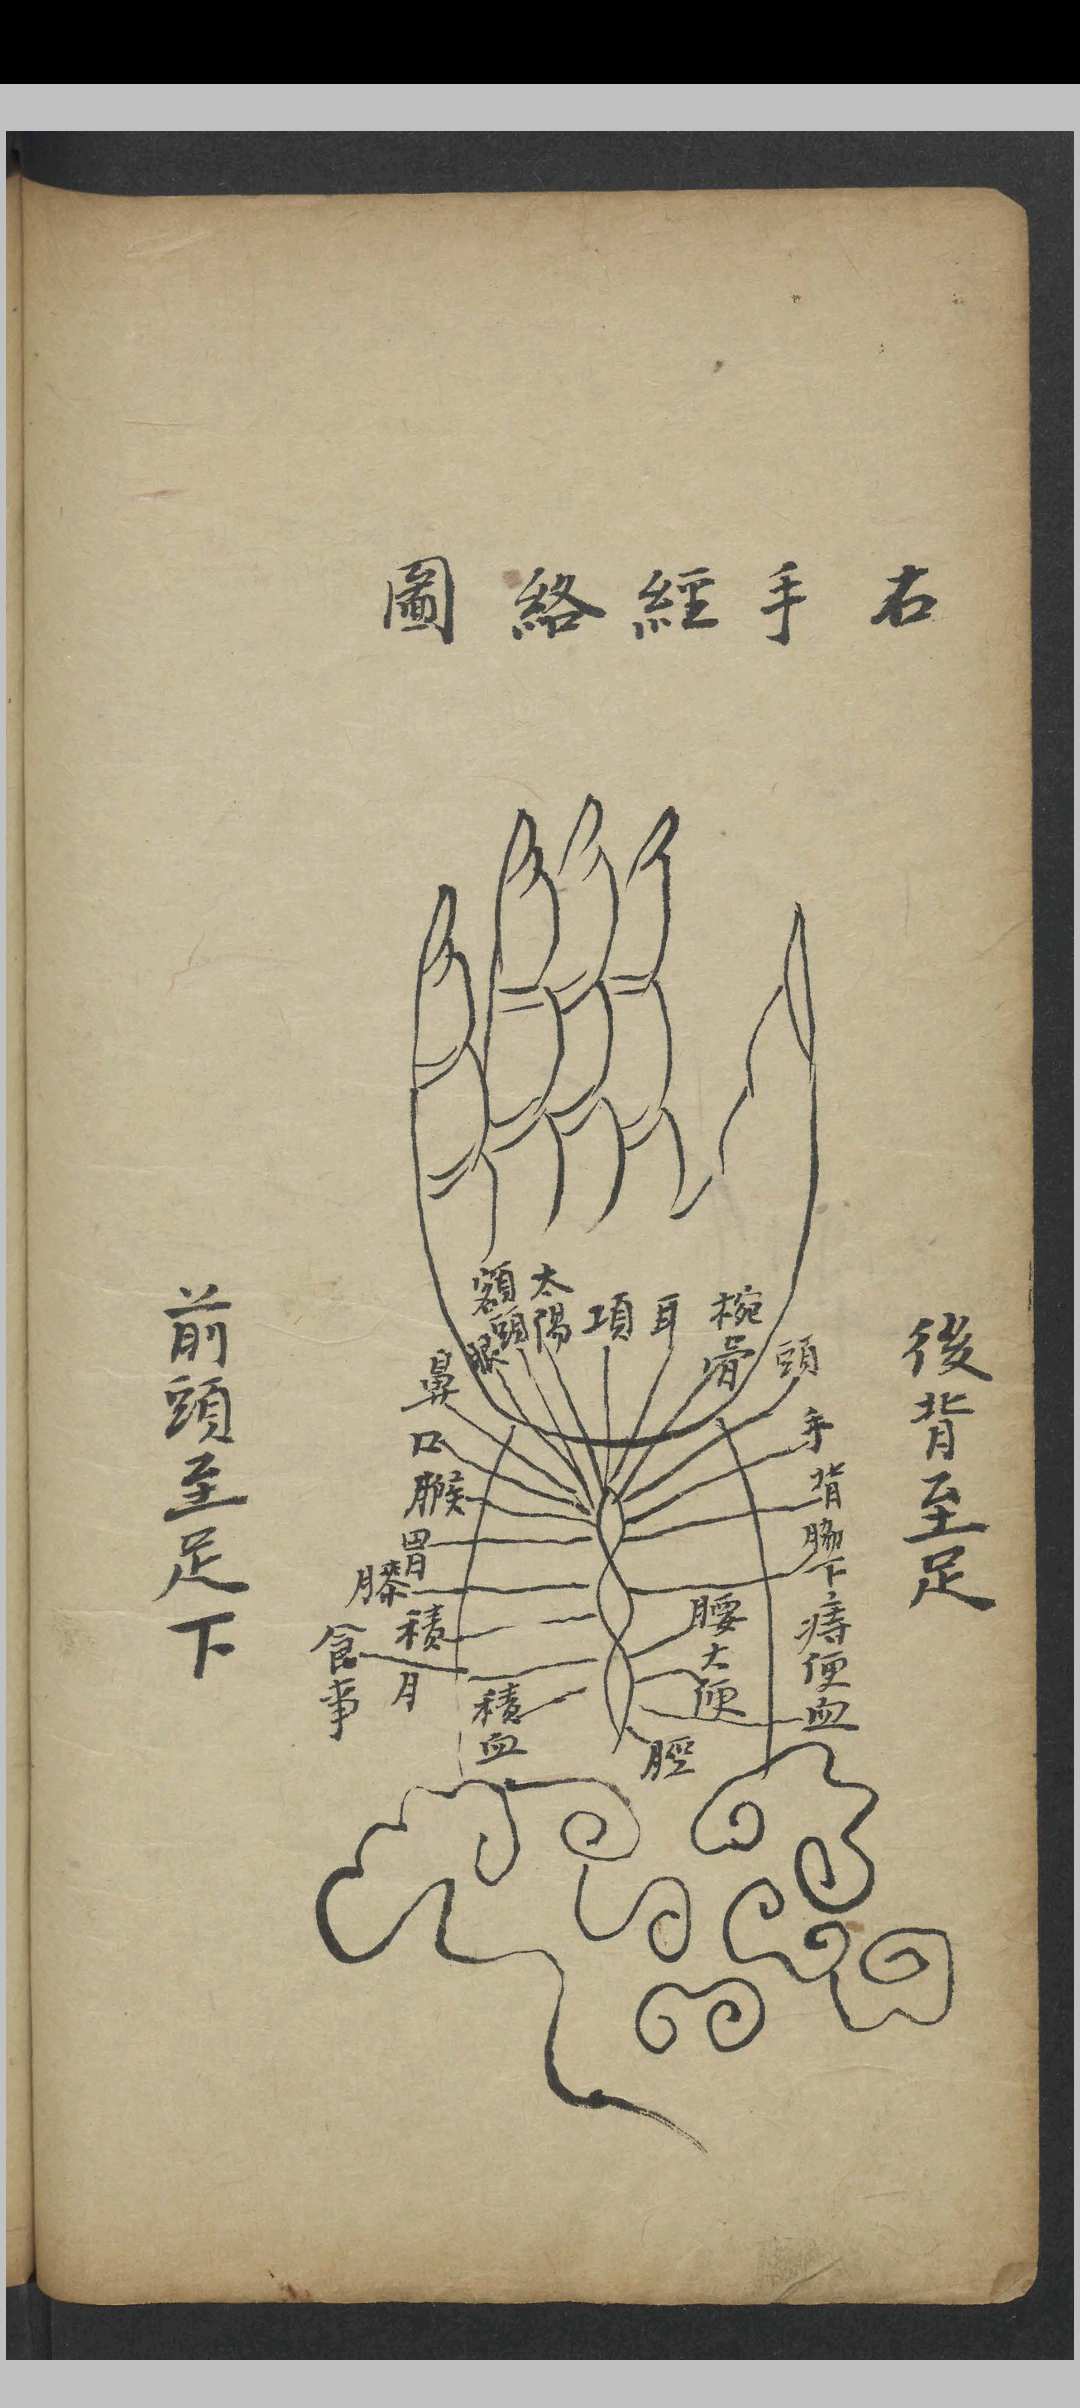 右手經絡圖
後背至足
頭
手
背
脇下
痔便血
椀骨
耳
項
太陽
額頭
眼
鼻
口
喉
胃
膝
積月
食事
積血
腰
大便
脛
前頭至足下